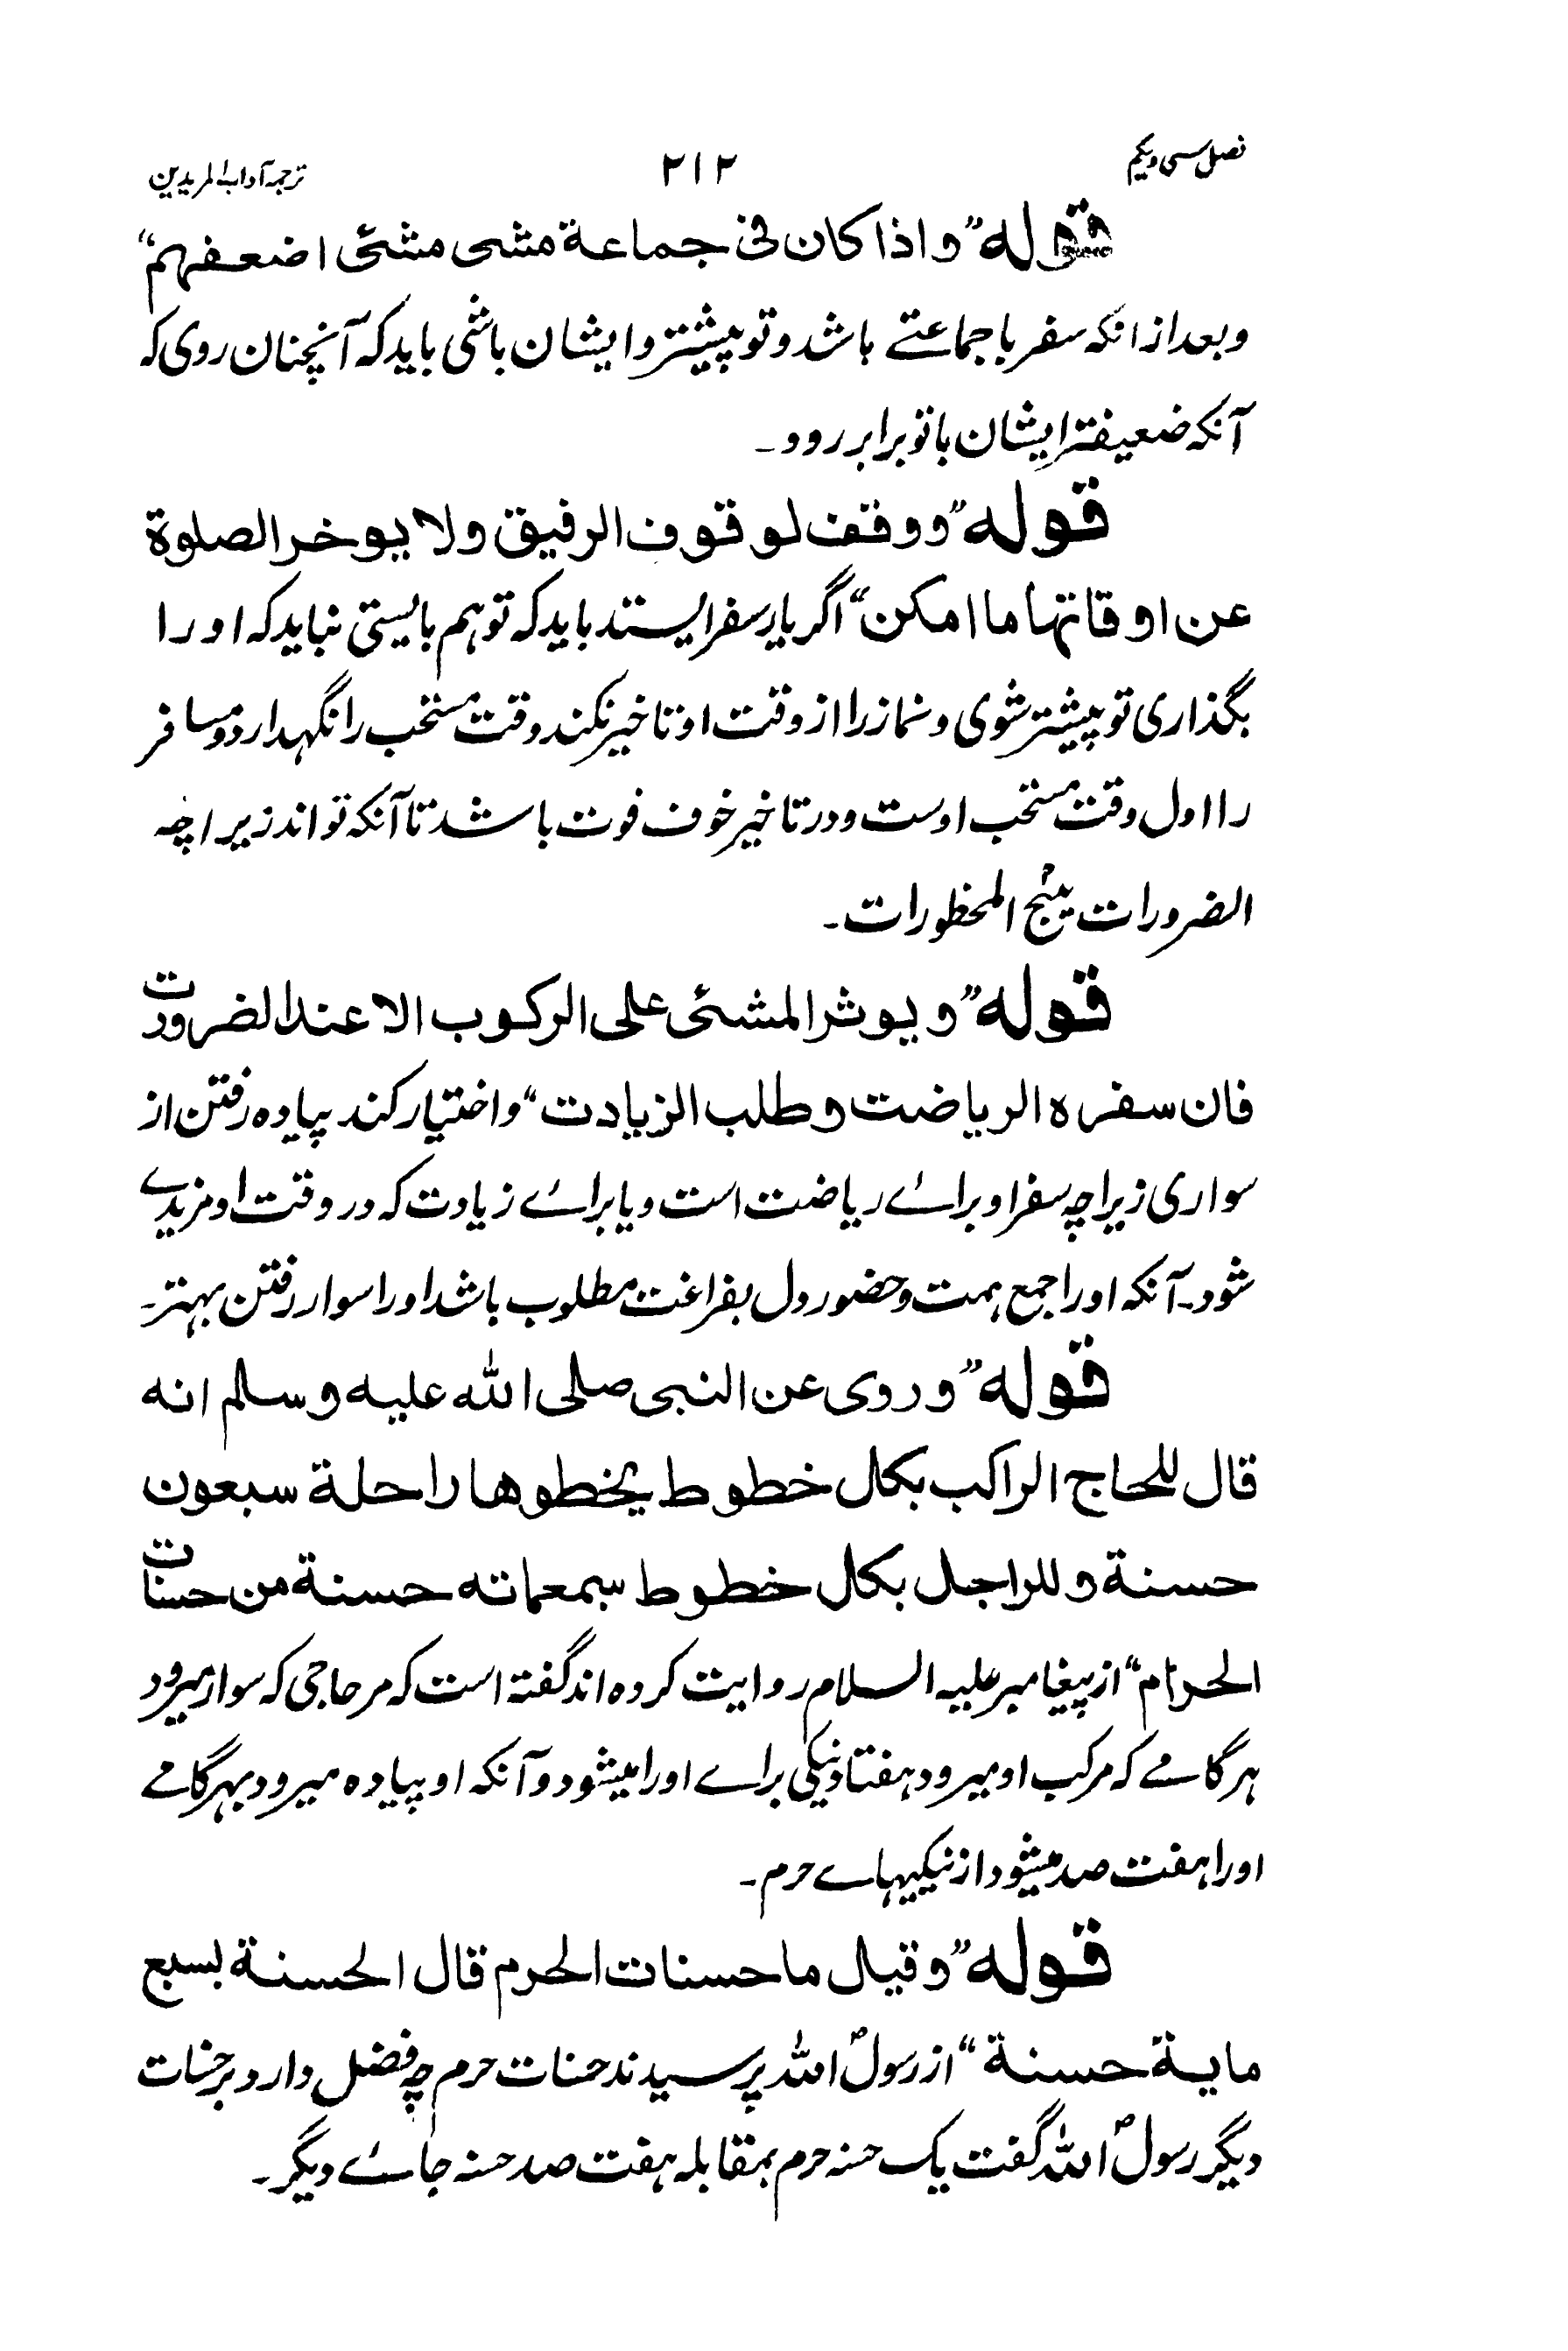 فصل سی و یکم ۲۱۲ ترجمہ آداب المریدین
قوله ”واذا كان فى جماعة مشى مشئى اضعفهم“
و بعد از انکہ سفر با جماعتے باشد و تو پیشتر و ایشان باشی باید کہ آنچنان روی کہ
آنکہ ضعیفتر ایشان با تو برابر رود۔
قوله ”ووقف لوقوف الرفيق ولا يوخر الصلوة
عن اوقاتها ما امكن“ اگر یار سفر ایستد باید کہ تو ہم بایستی نباید کہ او را
بگذاری تو پیشتر شوی و نماز را از وقت او تاخیر نکند وقت مستحب را نگہدارد و مسافر
را اول وقت مستحب اوست و در تاخیر خوف فوت باشد تا آنکہ تواند زیراچہ
الضرورات یبیح المحظورات۔
قوله ”ويوثر المشئى على الركوب الا عند الضرورت
فان سفره الرياضت وطلب الزيادت“ واختیار کند پیادہ رفتن از
سواری زیراچہ سفر او برائے ریاضت است و یا برائے زیادت کہ در وقت او مزیدے
شود۔ آنکہ او را جمع ہمت و حضور دل بفراغت مطلوب باشد او را سوار رفتن بہتر۔
قوله ”وروى عن النبى صلى الله عليه وسلم انه
قال للحاج الراكب بكل خطوط يخطوها راحلة سبعون
حسنة وللراجل بكل خطوط سبعماته حسنة من حسنات
الحرام“ از پیغامبر علیہ السلام روایت کردہ اند گفتہ است کہ مر حاجی کہ سوار میرود
ہر گامے کہ مرکب او میرود ہفتاد نیکی براے او را میشود و آنکہ او پیادہ میرود بہر گامے
او را ہفت صد میشود از نیکیہاے حرم۔
قوله ”وقيل ما حسنات الحرم قال الحسنة بسبع
ماية حسنة“ از رسولؐ اللہ پرسیدند حسنات حرم چہ فضل دارد بر حسنات
دیگر رسولؐ اللہ گفت یک حسنہ حرم بمقابلہ ہفت صد حسنہ جائے دیگر۔